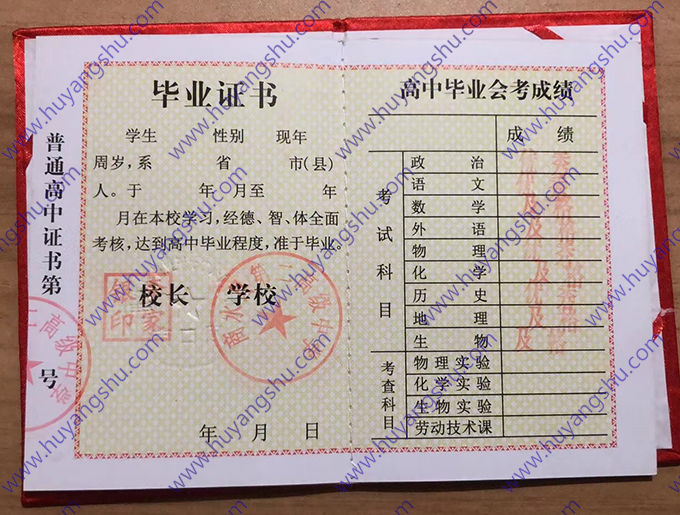 普通高中证书第
号
毕业证书
学生 性别 现年
周岁，系 省 市(县)
人。于 年 月至 年
月在本校学习，经德、智、体全面
考核，达到高中毕业程度，准于毕业。
校长 学校
年 月 日
高中毕业会考成绩
成 绩
考试科目
政 治
语 文
数 学
外 语
物 理
化 学
历 史
地 理
生 物
考查科目
物理实验
化学实验
生物实验
劳动技术课
二高级中学
高级中学
印
家
www.huyangshu.com